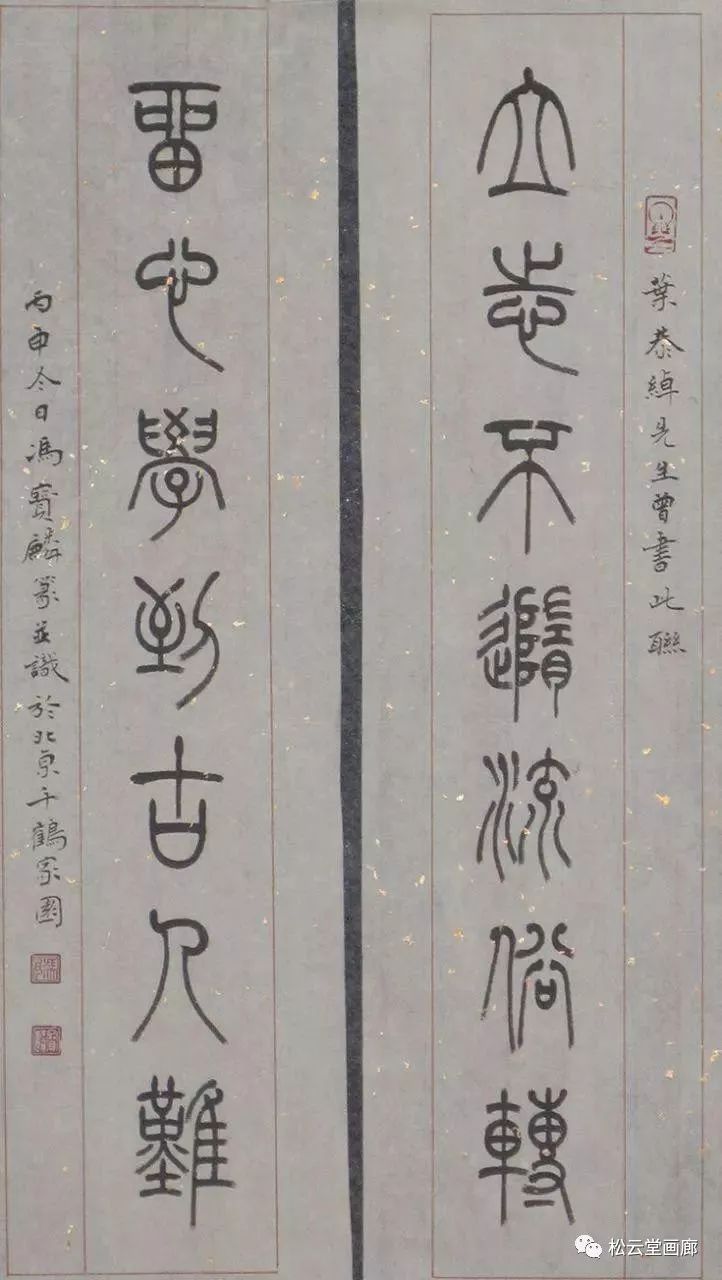 葉恭綽先生曾書此聯
立志不隨流俗轉
留心學到古人難
丙申今日馮寶麟篆並識於北京千鶴家園
松云堂画廊